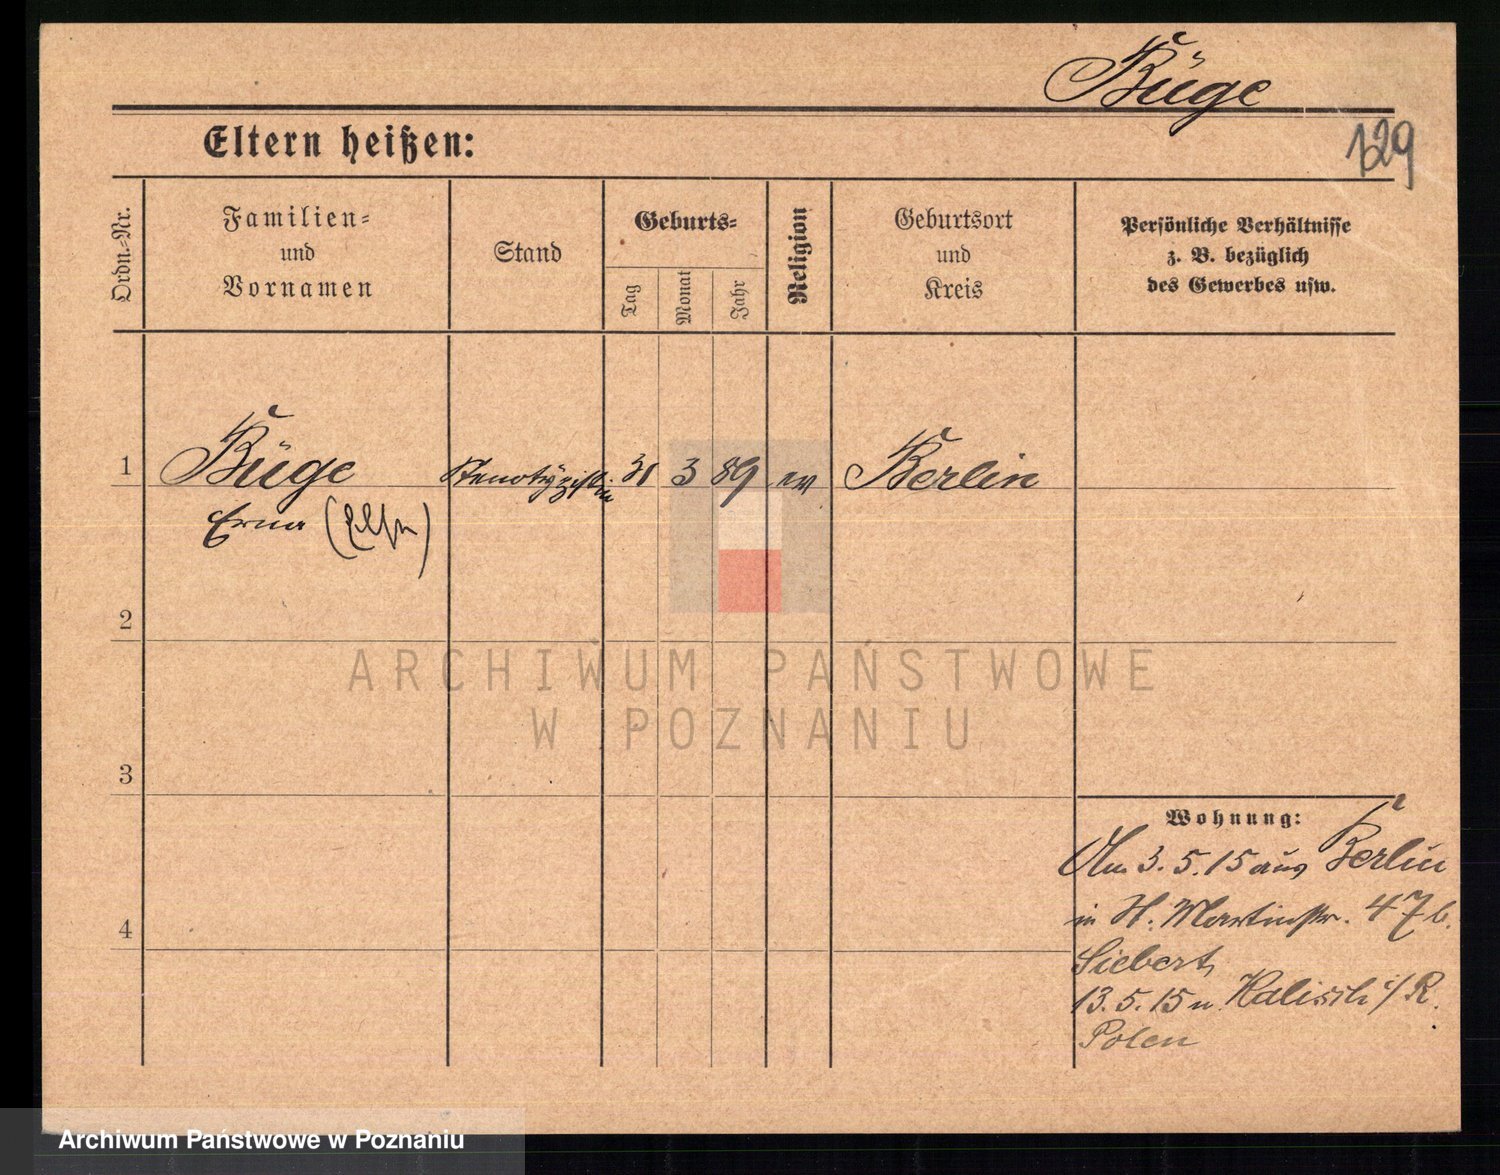 Büge
129
Eltern heißen:
Ordn.-Nr.
Familien-
und
Vornamen
Stand
Geburts-
Tag
Monat
Jahr
Religion
Geburtsort
und
Kreis
Persönliche Verhältnisse
z. B. bezüglich
des Gewerbes usw.
1
Büge
Stenotypistin
31
3
89
ev
Berlin
Erna
2
ARCHIWUM PAŃSTWOWE
W POZNANIU
3
Wohnung:
Am 3.5.15 aus Berlin
4
in St. Martinstr. 47 b.
Siebert,
13.5.15 n. Kalisch i/R.
Polen
Archiwum Państwowe w Poznaniu